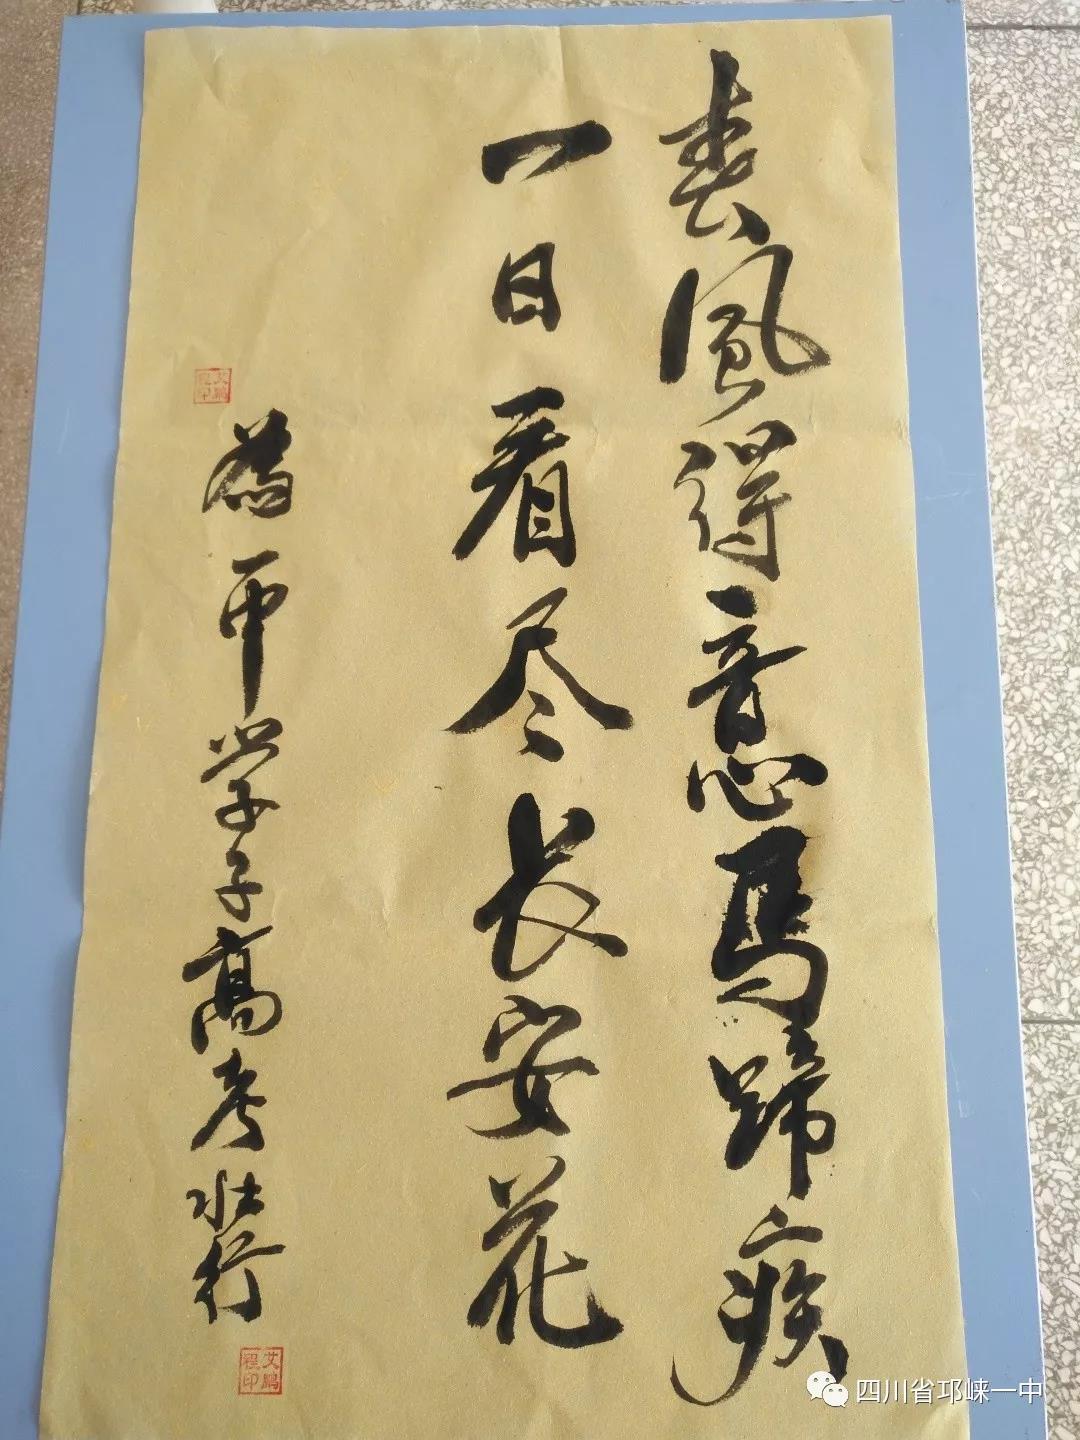 春風得意馬蹄疾
一日看尽长安花
為一中学子高考壮行
艾鵬程印
艾鵬程印
四川省邛崃一中